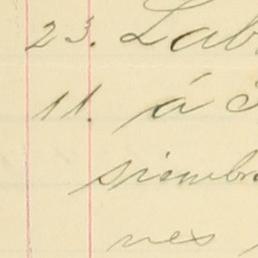 23. Lab
11. á
siembra
nes